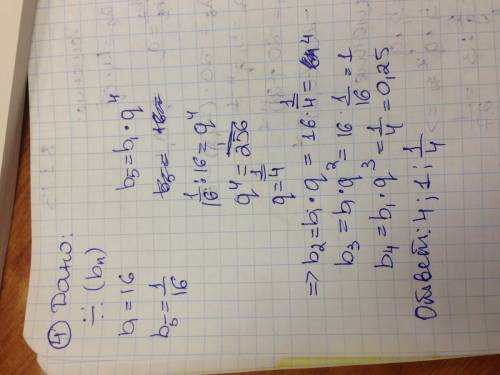 ④ Дано:
∺ (bn)
b1 = 16
b5 = 1/16
b5 = b1 · q⁴
1/16 : 16 = q⁴
q⁴ = 1/256
q = 1/4
=> b2 = b1 · q = 16 · 1/4 = 4
b3 = b1 · q² = 16 · 1/16 = 1
b4 = b1 · q³ = 1/4 = 0,25
Ответ: 4; 1; 1/4